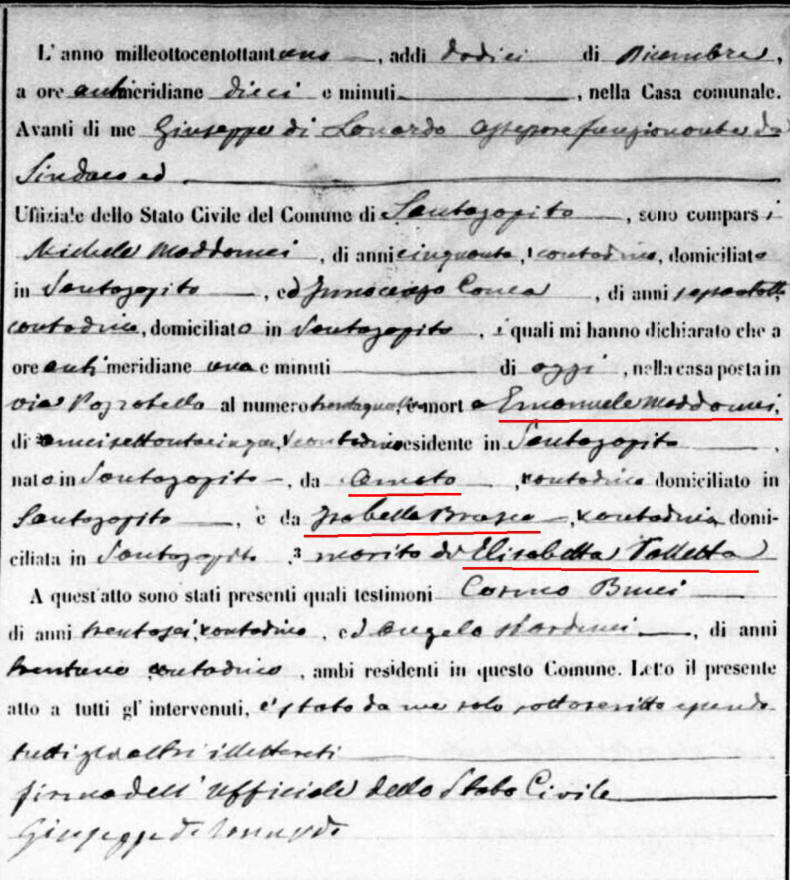 L'anno milleottocentottantuno, addi dodici di Dicembre,
a ore antimeridiane dieci e minuti, nella Casa comunale.
Avanti di me Giuseppe di Lonardo assessore funzionante da
Sindaco ed
Uffiziale dello Stato Civile del Comune di Santagapito, sono comparsi
Michele Maddonni, di anni cinquanta, contadino, domiciliato
in Santagapito, ed Innocenzo Conca, di anni
contadino, domiciliato in Santagapito, i quali mi hanno dichiarato che a
ore antimeridiane una e minuti di oggi, nella casa posta in
via Pozzobello al numero è morto Emanuele Maddonni,
di anni settantacinque, contadino residente in Santagapito,
nato in Santagapito, da Amato, contadino domiciliato in
Santagapito, e da Isabella, contadina domi-
ciliata in Santagapito, marito di Elisabetta Talletta
A quest'atto sono stati presenti quali testimoni Cosmo Bucci
di anni trentasei, contadino, ed Angelo Narducci, di anni
trentuno contadino, ambi residenti in questo Comune. Letto il presente
atto a tutti gl' intervenuti, è stato da me solo sottoscritto essendo
tutti gli altri illetterati
firma dell' Ufficiale dello Stato Civile
Giuseppe di Lonardo